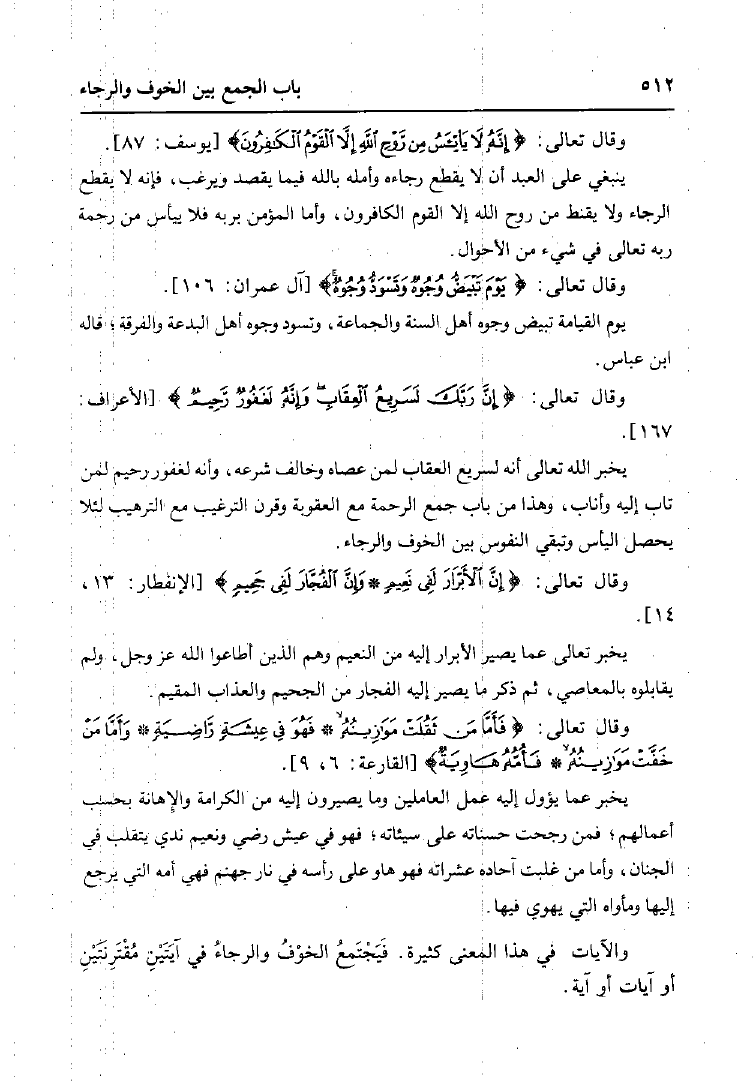 ٥١٢
باب الجمع بين الخوف والرجاء
وقال تعالى: ﴿ إِنَّهُ لَا يَايْـَسُ مِن رَّوْحِ اللَّهِ إِلَّا الْقَوْمُ الْكَافِرُونَ﴾ [يوسف: ٨٧].
ينبغي على العبد أن لا يقطع رجاءه وأمله بالله فيما يقصد ويرغب، فإنه لا يقطع
الرجاء ولا يقنط من روح الله إلا القوم الكافرون، وأما المؤمن بربه فلا ييأس من رحمة
ربه تعالى في شيء من الأحوال.
وقال تعالى: ﴿ يَوْمَ تَبْيَضُّ وُجُوهٌ وَتَسْوَدُّ وُجُوهٌ﴾ [آل عمران: ١٠٦].
يوم القيامة تبيض وجوه أهل السنة والجماعة، وتسود وجوه أهل البدعة والفرقة؛ قاله
ابن عباس.
وقال تعالى: ﴿ إِنَّ رَبَّكَ لَسَرِيعُ الْعِقَابِ وَإِنَّهُ لَغَفُورٌ رَّحِيمٌ ﴾ [الأعراف:
١٦٧].
يخبر الله تعالى أنه لسريع العقاب لمن عصاه وخالف شرعه، وأنه لغفور رحيم لمن
تاب إليه وأناب، وهذا من باب جمع الرحمة مع العقوبة وقرن الترغيب مع الترهيب لئلا
يحصل اليأس وتبقي النفوس بين الخوف والرجاء.
وقال تعالى: ﴿ إِنَّ الْأَبْرَارَ لَفِى نَعِيمٍ * وَإِنَّ الْفُجَّارَ لَفِى جَحِيمٍ ﴾ [الإنفطار: ١٣،
١٤].
يخبر تعالى عما يصير الأبرار إليه من النعيم وهم الذين أطاعوا الله عز وجل، ولم
يقابلوه بالمعاصي، ثم ذكر ما يصير إليه الفجار من الجحيم والعذاب المقيم.
وقال تعالى: ﴿ فَأَمَّا مَن ثَقُلَتْ مَوَازِينُهُ * فَهُوَ فِى عِيشَةٍ رَّاضِيَةٍ * وَأَمَّا مَنْ
خَفَّتْ مَوَازِينُهُ * فَأُمُّهُ هَاوِيَةٌ﴾ [القارعة: ٦، ٩].
يخبر عما يؤول إليه عمل العاملين وما يصيرون إليه من الكرامة والإهانة بحسب
أعمالهم؛ فمن رجحت حسناته على سيئاته؛ فهو في عيش رضي ونعيم ندي يتقلب في
الجنان، وأما من غلبت آحاده عشراته فهو هاو على رأسه في نار جهنم فهي أمه التي يرجع
إليها ومأواه التي يهوي فيها.
والآيات في هذا المعنى كثيرة. فَيَجْتَمِعُ الخوْفُ والرجاءُ في آيَتَيْنِ مُقْتَرِنَتَيْنِ
أو آيات أو آية.